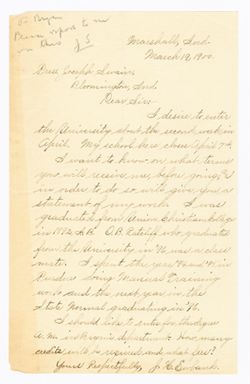 To Bryan
Please report to me
on this J S
Marshall, Ind.
March 19, 1900.
Pres. Joseph Swain,
Bloomington, Ind.
Dear Sir:-
I desire to enter
the University about the second week in
April. My school here closes April 7th.
I want to know on what terms
you will receive me, before going, &
in order to do so, will give you a
statement of my work. I was
graduated from Union Christian College
in 1892 A.B. O.B. Ratcliff who graduated
from the University in '96 was a class
mate. I spent the year in
Purdue doing Manual Training
work and the next year in the
State Normal graduating in '96.
I should like to enter for the degree
A.M. in Bryan's department. How many
credits will be required and what are?
Yours Respectfully, J. H. Eubank.